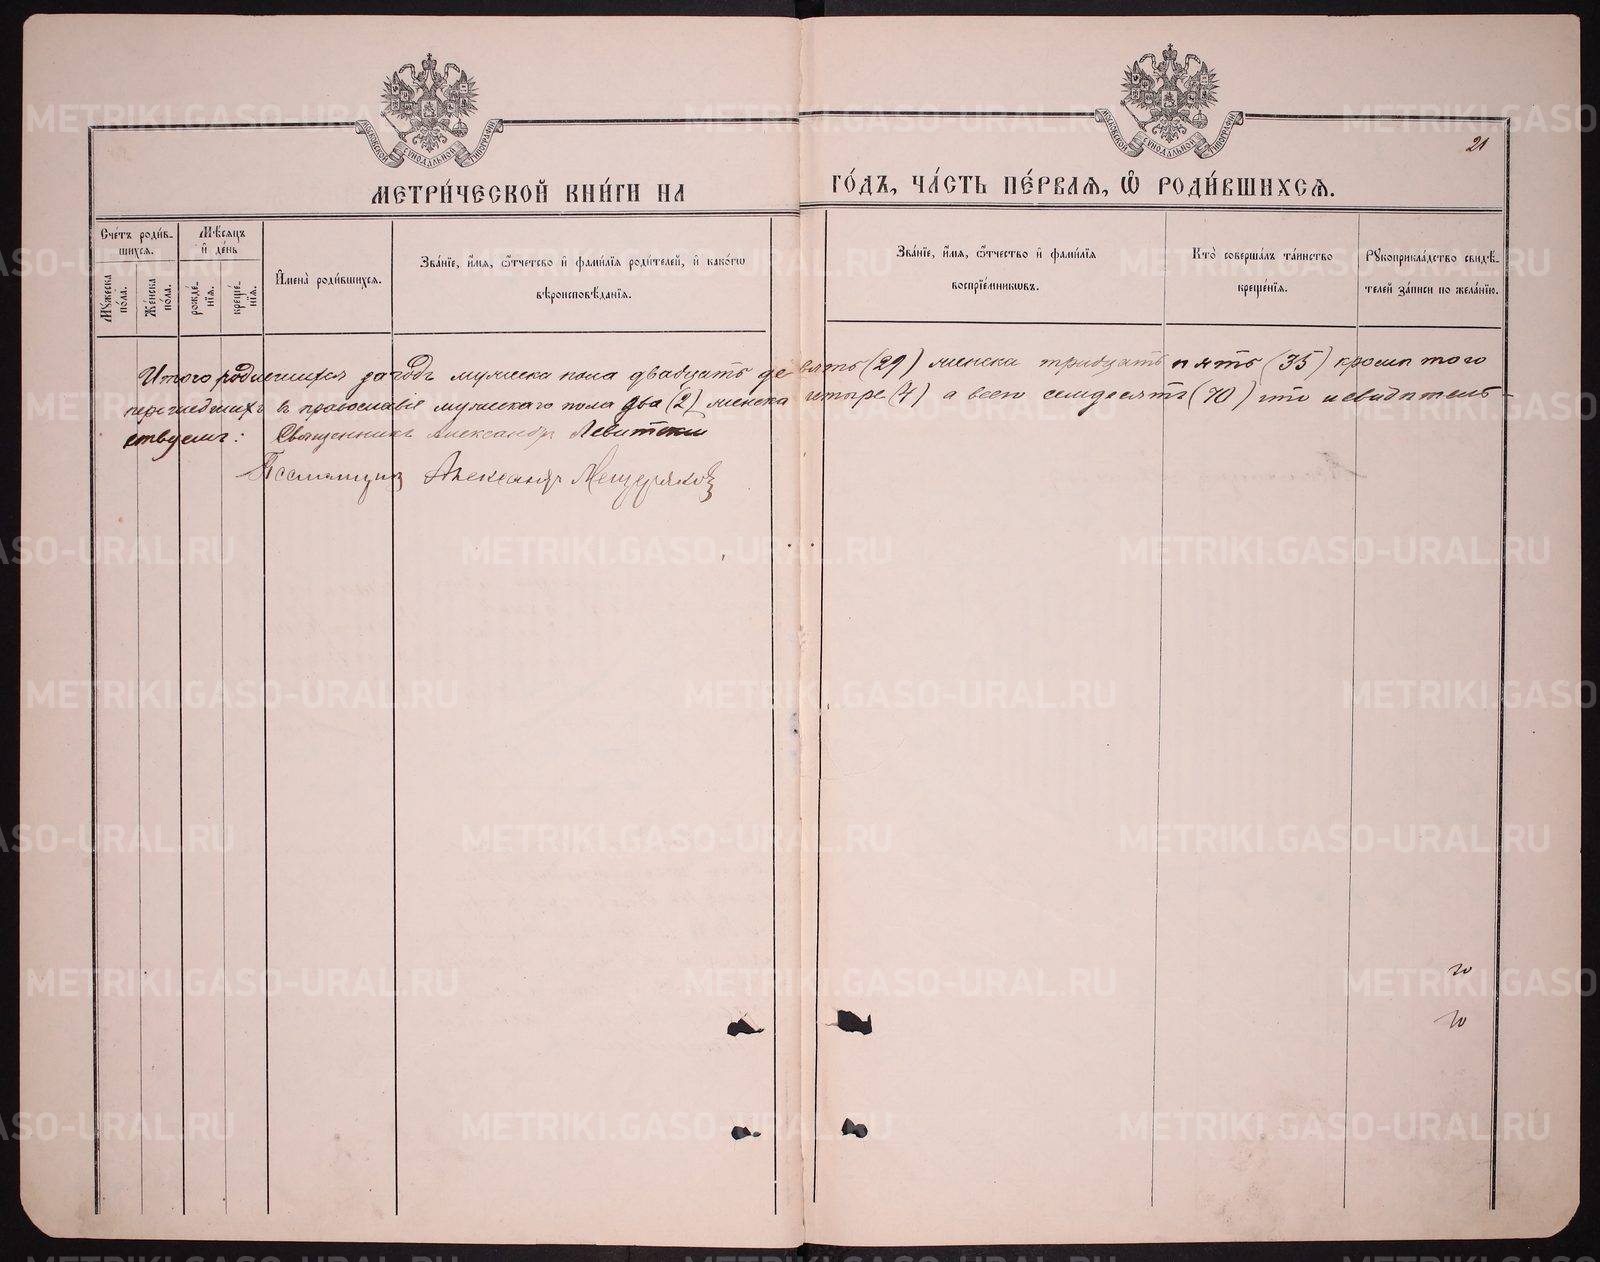 21
МЕТРИ́ЧЕСКОЙ КНИ́ГИ НА ГО́ДЪ, ЧА́СТЬ ПЕ́РВАѦ, Ѡ҆ РОДИ́ВШИХСѦ.
Сче́тъ роди́в-
шихсѧ.
Мꙋ́жеска по́ла.
Же́нска по́ла.
Мѣ́сѧцъ
и҆ де́нь
рожде́-
нїѧ.
креще́-
нїѧ.
И҆мена̀ роди́вшихсѧ.
Зва́нїе, и҆́мѧ, ѻ҆́тчество и҆ фами́лїѧ роди́телей, и҆ како́гѡ
вѣроисповѣ́данїѧ.
Зва́нїе, и҆́мѧ, ѻ҆́тчество и҆ фами́лїѧ
воспрїе́мникѡвъ.
Кто̀ соверша́лъ та́инство
креще́нїѧ.
Рꙋкоприкла́дство свидѣ́-
телей за́писи по жела́нїю.
Итого родившихся за годъ мужеска пола двадцать девять (29) женска тридцать пять (35) кромѣ того
перешедшихъ в православіе мужескаго пола два (2) женска четыре (4) а всего семдесятъ (70) что и свидѣтель-
ствуемъ: Священникъ Александръ Левитскій
Псаломщикъ Александръ Мещеряковъ
МОСКОВСКОЙ СѴНОДАЛЬНОЙ ТИПОГРАФІИ
МОСКОВСКОЙ СѴНОДАЛЬНОЙ ТИПОГРАФІИ
METRIKI.GASO-URAL.RU